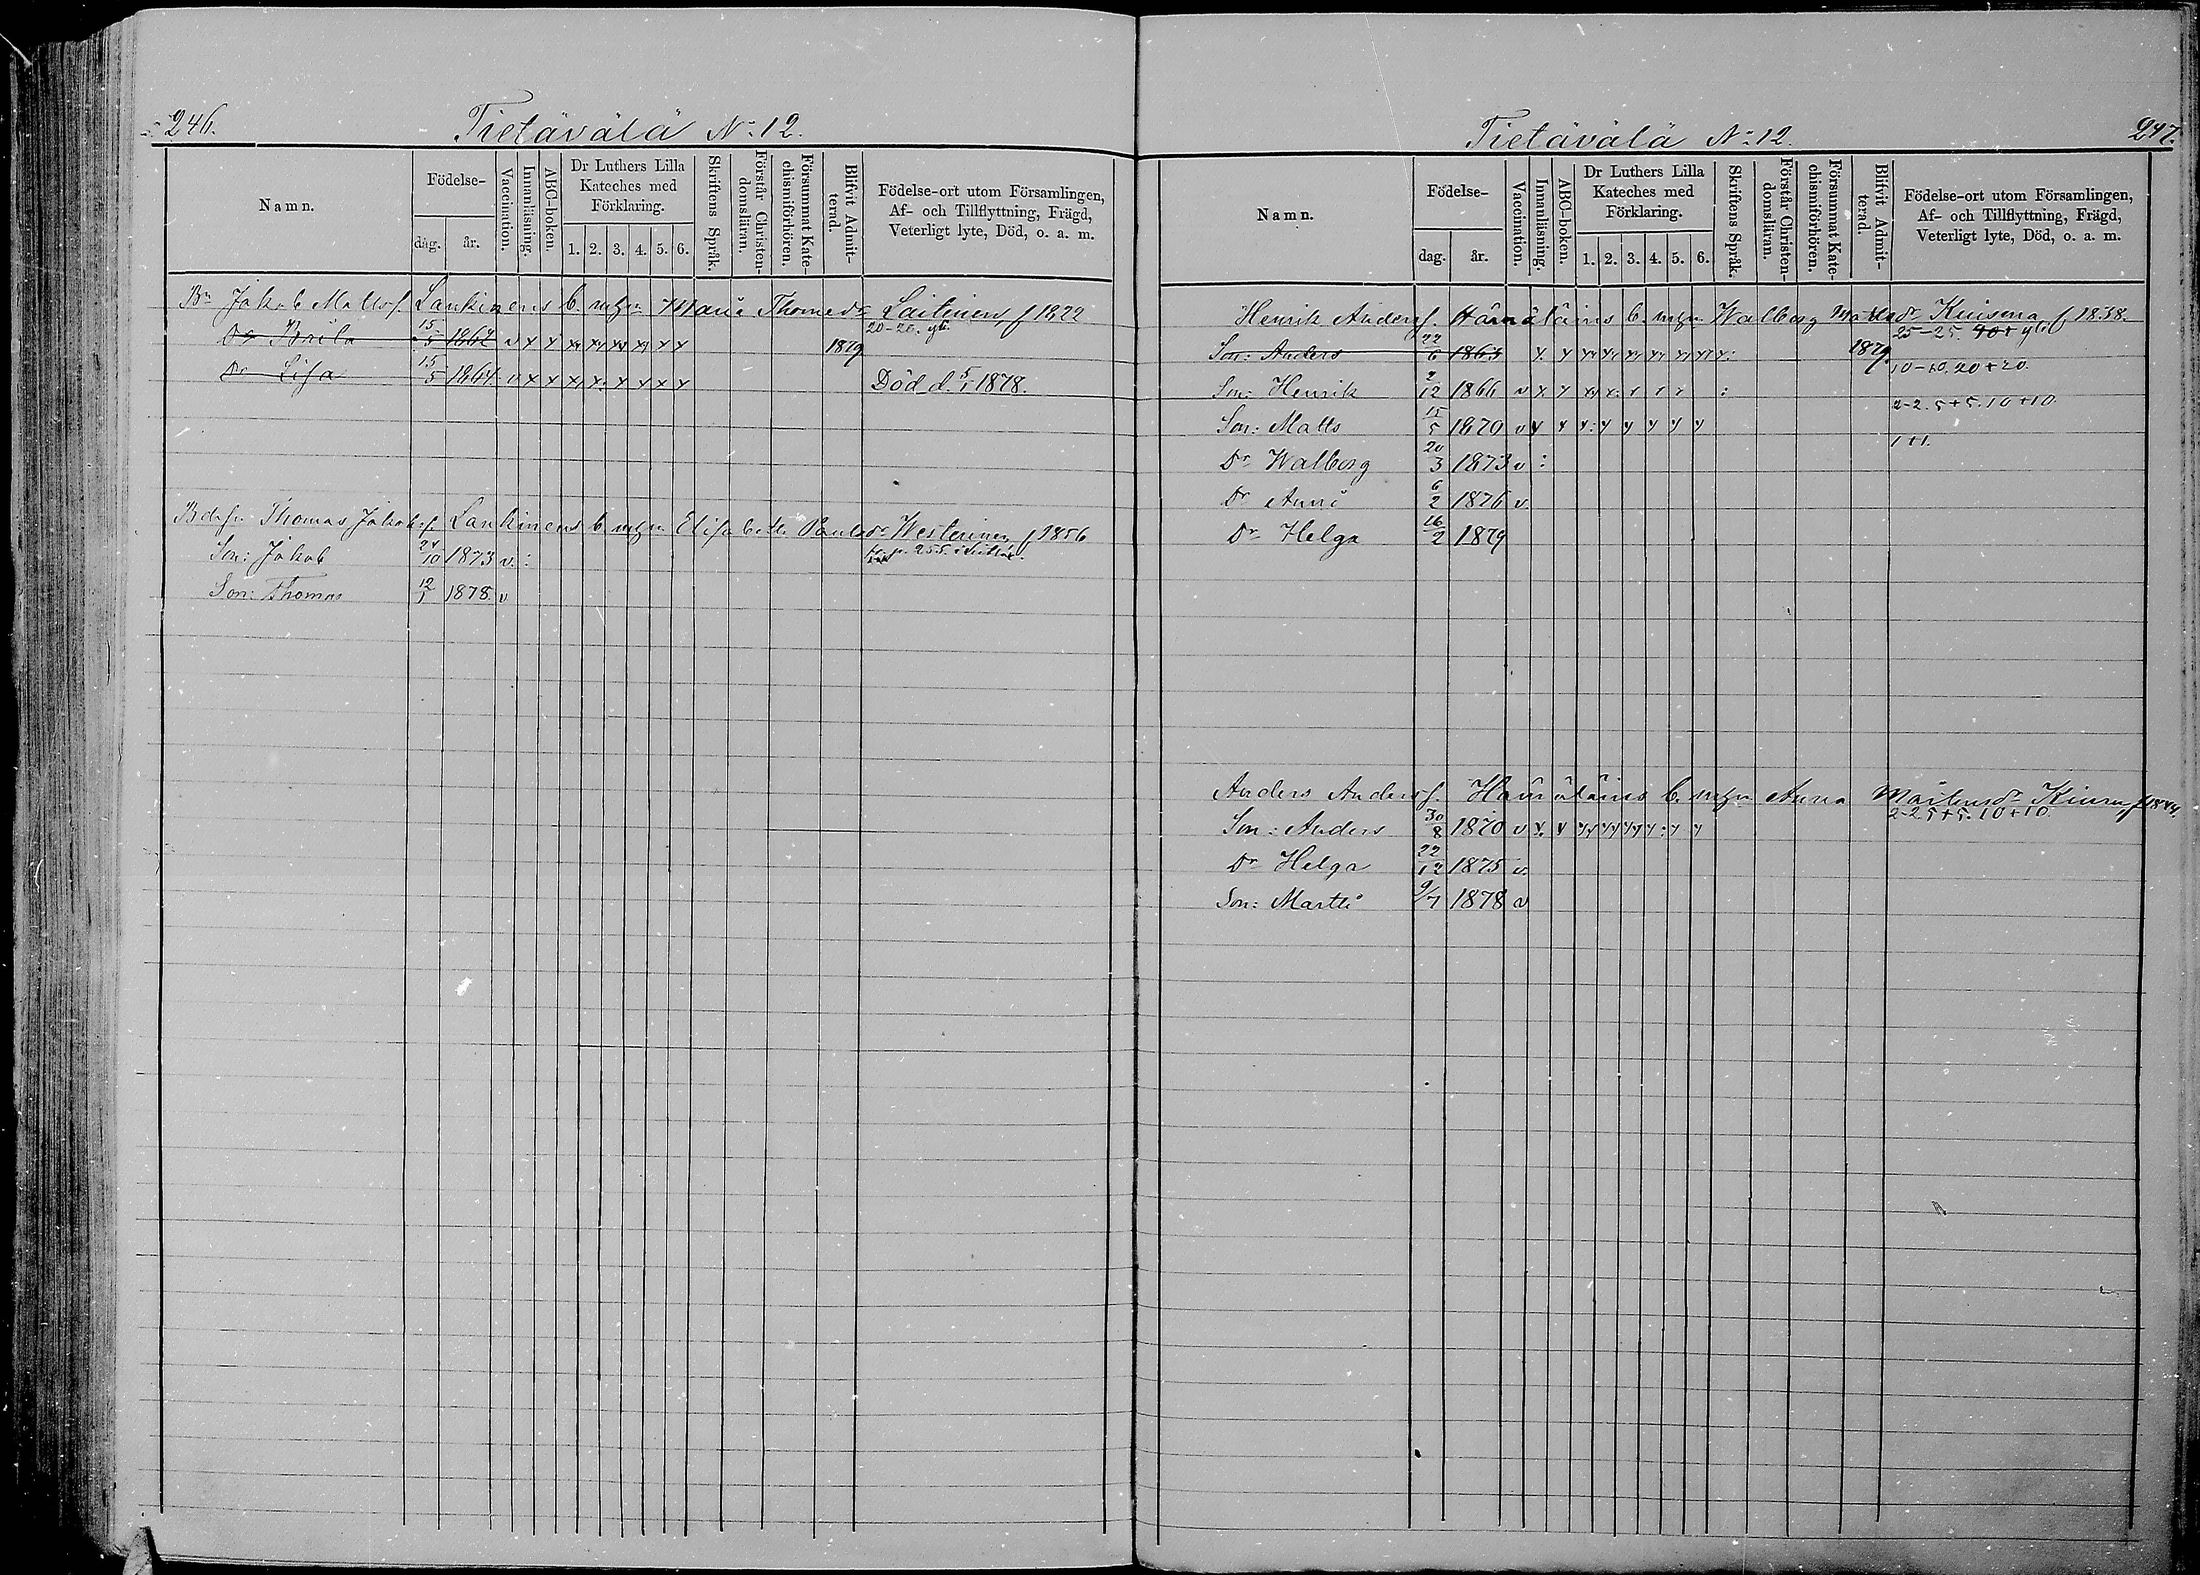 246.
Tietävälä No 12.
Namn.
Födelse-
dag.
år.
Vaccination.
Innanläsning.
ABC-boken.
Dr Luthers Lilla Kateches med Förklaring.
1. 2. 3. 4. 5. 6.
Skriftens Språk.
Förstår Christen-domsläran.
Försummat Kate-chismiförhören.
Blifvit Admit-terad.
Födelse-ort utom Församlingen,
Af- och Tillflyttning, Frägd,
Veterligt lyte, Död, o. a. m.
Bn Jakob Mattsf. Lankinens b. m. fru Maria Thomædr Laitinen, f 1822
20-20.
Dr Brita 15/5 1862 v x x x x x x x x 1879
Dr Lisa 15/5 1864 v x x x x x x x x Död d. 5/1 1878.
Thomas Jakobsf. Lankinens b. m. fru Elisabeth Paulsdr Westerinen f 1856
p. 255.
Son: Jakob 24/10 1873 v. :
Son: Thomas 12/1 1878 v
247.
Tietävälä No 12.
Namn.
Födelse-
dag.
år.
Vaccination.
Innanläsning.
ABC-boken.
Dr Luthers Lilla Kateches med Förklaring.
1. 2. 3. 4. 5. 6.
Skriftens Språk.
Förstår Christen-domsläran.
Försummat Kate-chismiförhören.
Blifvit Admit-terad.
Födelse-ort utom Församlingen,
Af- och Tillflyttning, Frägd,
Veterligt lyte, Död, o. a. m.
Henrik Andersf. Hämäläins b. m. fru Walborg Mattsdr Kuisma f 1838.
25-25. 40+
Son: Anders 22/6 1863 x x x x x x x x x: 1879
10-10. 20+20.
Son: Henrik 2/12 1866 v x x x x x x x :
2-2. 5+5. 10+10.
Son: Matts 15/5 1870 v x x x x x x x x
1+1.
Dr Walborg 20/3 1873 v :
Dr Anni 6/2 1876 v
Dr Helga 16/2 1879
Anders Andersf. Hämäläins b. m. fru Anna Mårtensdr f 1844.
2-2 5+5. 10+10.
Son: Anders 30/8 1870 v x. x x x x x x x
Dr Helga 22/12 1875 v.
Son: Martti 9/7 1878 v